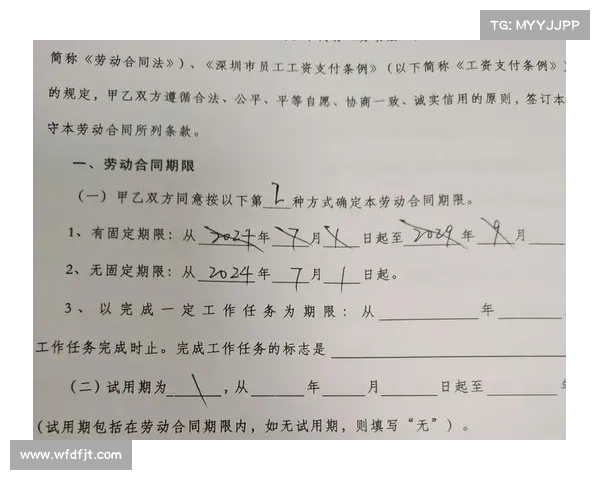 TG: MYYJJPP
简称《劳动合同法》)、《深圳市员工工资支付条例》(以下简称《工资支付条例》)
的规定，甲乙双方遵循合法、公平、平等自愿、协商一致、诚实信用的原则，签订本
守本劳动合同所列条款。
一、劳动合同期限
(一) 甲乙双方同意按以下第 2 种方式确定本劳动合同期限。
1、有固定期限：从 年 7 月 1 日起至 2029 年 9 月
2、无固定期限：从 2024 年 7 月 1 日起。
3、以完成一定工作任务为期限：从 年
工作任务完成时止。完成工作任务的标志是
(二) 试用期为 \ ，从 年 月 日起至 年
(试用期包括在劳动合同期限内，如无试用期，则填写“无”)。
www.wfdfjt.com